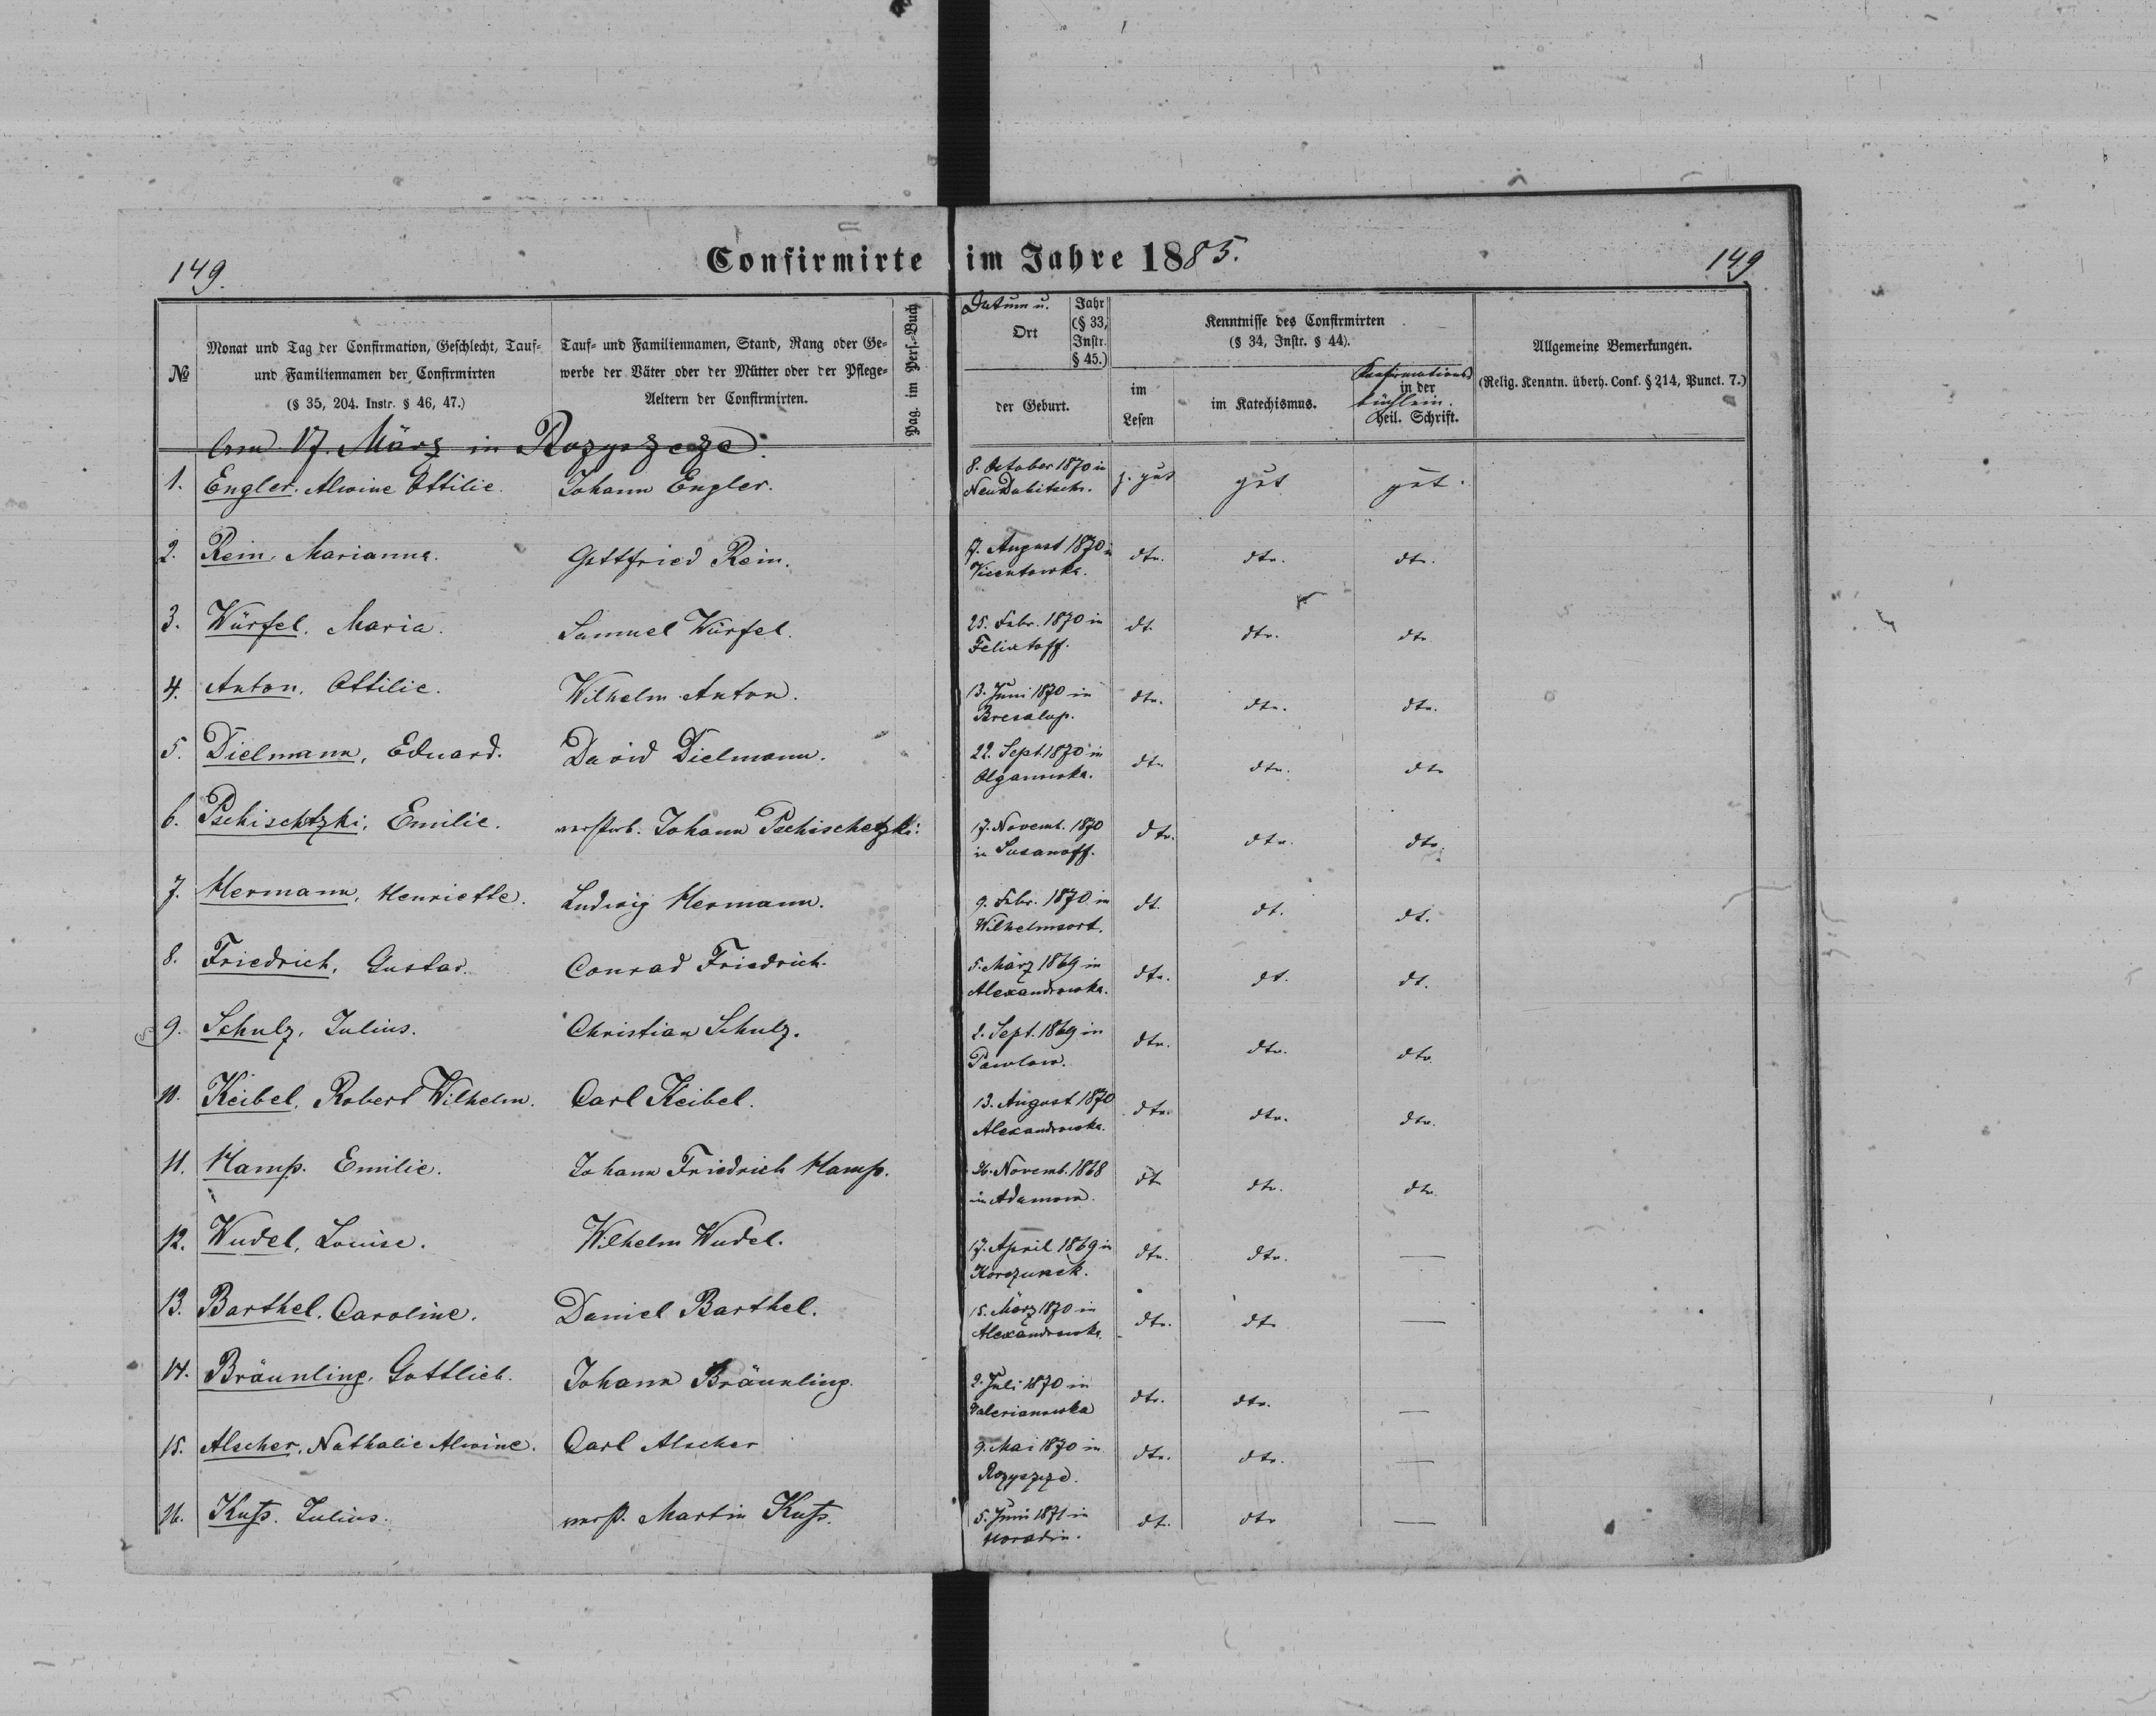 149. Confirmirte im Jahre 1885. 149
№
Monat und Tag der Confirmation, Geschlecht, Tauf-
und Familiennamen der Confirmirten
(§ 35, 204. Instr. § 46, 47.)
Tauf- und Familiennamen, Stand, Rang oder Ge-
werbe der Väter oder der Mütter oder der Pflege-
Aeltern der Confirmirten.
Pag. im Pers.-Buch
Datum u.
Ort
Jahr
(§ 33,
Instr.
§ 45.)
der Geburt.
Kenntnisse des Confirmirten
(§ 34, Instr. § 44).
im
Lesen
im Katechismus.
Konfirmations
in der
büchlein.
heil. Schrift.
Allgemeine Bemerkungen.
(Relig. Kenntn. überh. Conf. § 214, Punct. 7.)
Am 17. März in Rozyszcze.
1. Engler, Alwine Ottilie. Johann Engler. 8. October 1870 in z. gut gut gut.
2. Rein, Marianna. Gottfried Rein. 17. August 1870 in dto. dto. dto.
3. Würfel, Maria. Samuel Würfel. 25. Febr. 1870 in dt. dto. dto
Felixtoff.
4. Anton, Ottilie. Wilhelm Anton. 13. Juni 1870 in dto. dto. dto.
5. Dielmann, Eduard. David Dielmann. 22. Sept. 1870 in dto dto. dto
Olganowka.
6. Pschischtzki, Emilie. verstorb. Johann Pschischetzki. 17. Novemb. 1870 dto. dto. dto.
in Susanoff.
7. Hermann, Henriette. Ludwig Hermann. 9. Febr. 1870 in dt. dt. dt.
Wilhelmsort.
8. Friedrich, Gustav. Conrad Friedrich. 5. März 1869 in dto. dt. dt.
Alexandrowka.
9. Schulz, Julius. Christian Schulz. 2. Sept. 1869 in dto. dto. dto
Pawlow.
10. Keibel, Robert Wilhelm. Carl Keibel. 13. August 1870 dto. dto. dto.
Alexandrowka.
11. Hamp. Emilie. Johann Friedrich Hamp. 26. Novemb. 1868 dt dto. dto
in Adamow.
12. Wudel, Louise. Wilhelm Wudel. 17. April 1869 in dto. dto. —
Korczunek.
13. Barthel, Caroline. Daniel Barthel. 15. März 1870 in dto. dto —
Alexandrowka.
14. Bräunling, Gottlieb. Johann Bräunling. 2. Juli 1870 in dto. dto. —
Valerianowka
15. Alscher, Nathalie Alwine. Carl Alscher 9. Mai 1870 in dto. dto. —
Rozyszcze.
16. Kuß. Julius. verst. Martin Kuß. 5. Juni 1871 in dt. dto —